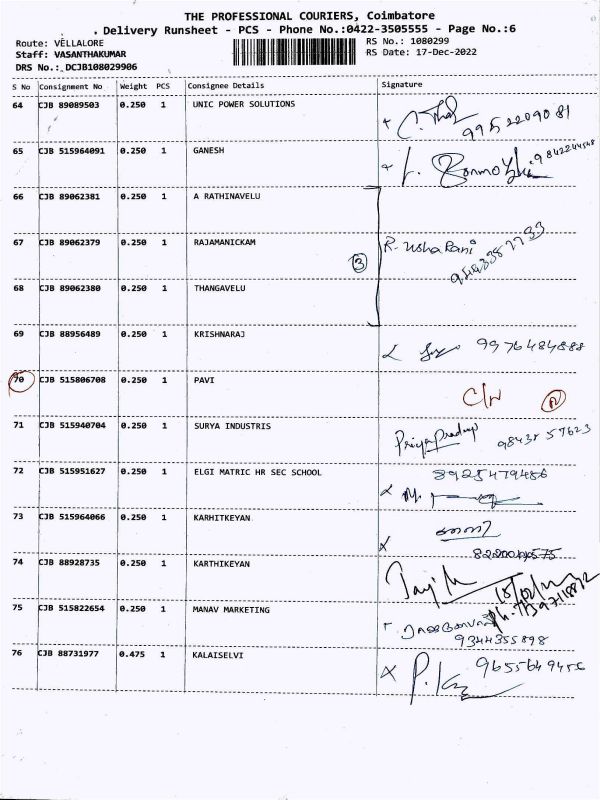 THE PROFESSIONAL COURIERS, Coimbatore
. Delivery Runsheet - PCS - Phone No.:0422-3505555 - Page No.:6
Route: VELLALORE
RS No.: 1080299
Staff: VASANTHAKUMAR
RS Date: 17-Dec-2022
DRS No.: DCJB108029906
S No Consignment No Weight PCS Consignee Details Signature
64 CJB 89089503 0.250 1 UNIC POWER SOLUTIONS
9952209081
65 CJB 515964091 0.250 1 GANESH
9842244568
66 CJB 89062381 0.250 1 A RATHINAVELU
67 CJB 89062379 0.250 1 RAJAMANICKAM R. Usha Rani
3
68 CJB 89062380 0.250 1 THANGAVELU
69 CJB 88956489 0.250 1 KRISHNARAJ 9976484888
70 CJB 515806708 0.250 1 PAVI
C/N
71 CJB 515940704 0.250 1 SURYA INDUSTRIS Priya Pradeep 98438 57623
72 CJB 515951627 0.250 1 ELGI MATRIC HR SEC SCHOOL 8925479486
73 CJB 515964066 0.250 1 KARHITKEYAN
74 CJB 88928735 0.250 1 KARTHIKEYAN
75 CJB 515822654 0.250 1 MANAV MARKETING
9344355898
76 CJB 88731977 0.475 1 KALAISELVI 9655649456